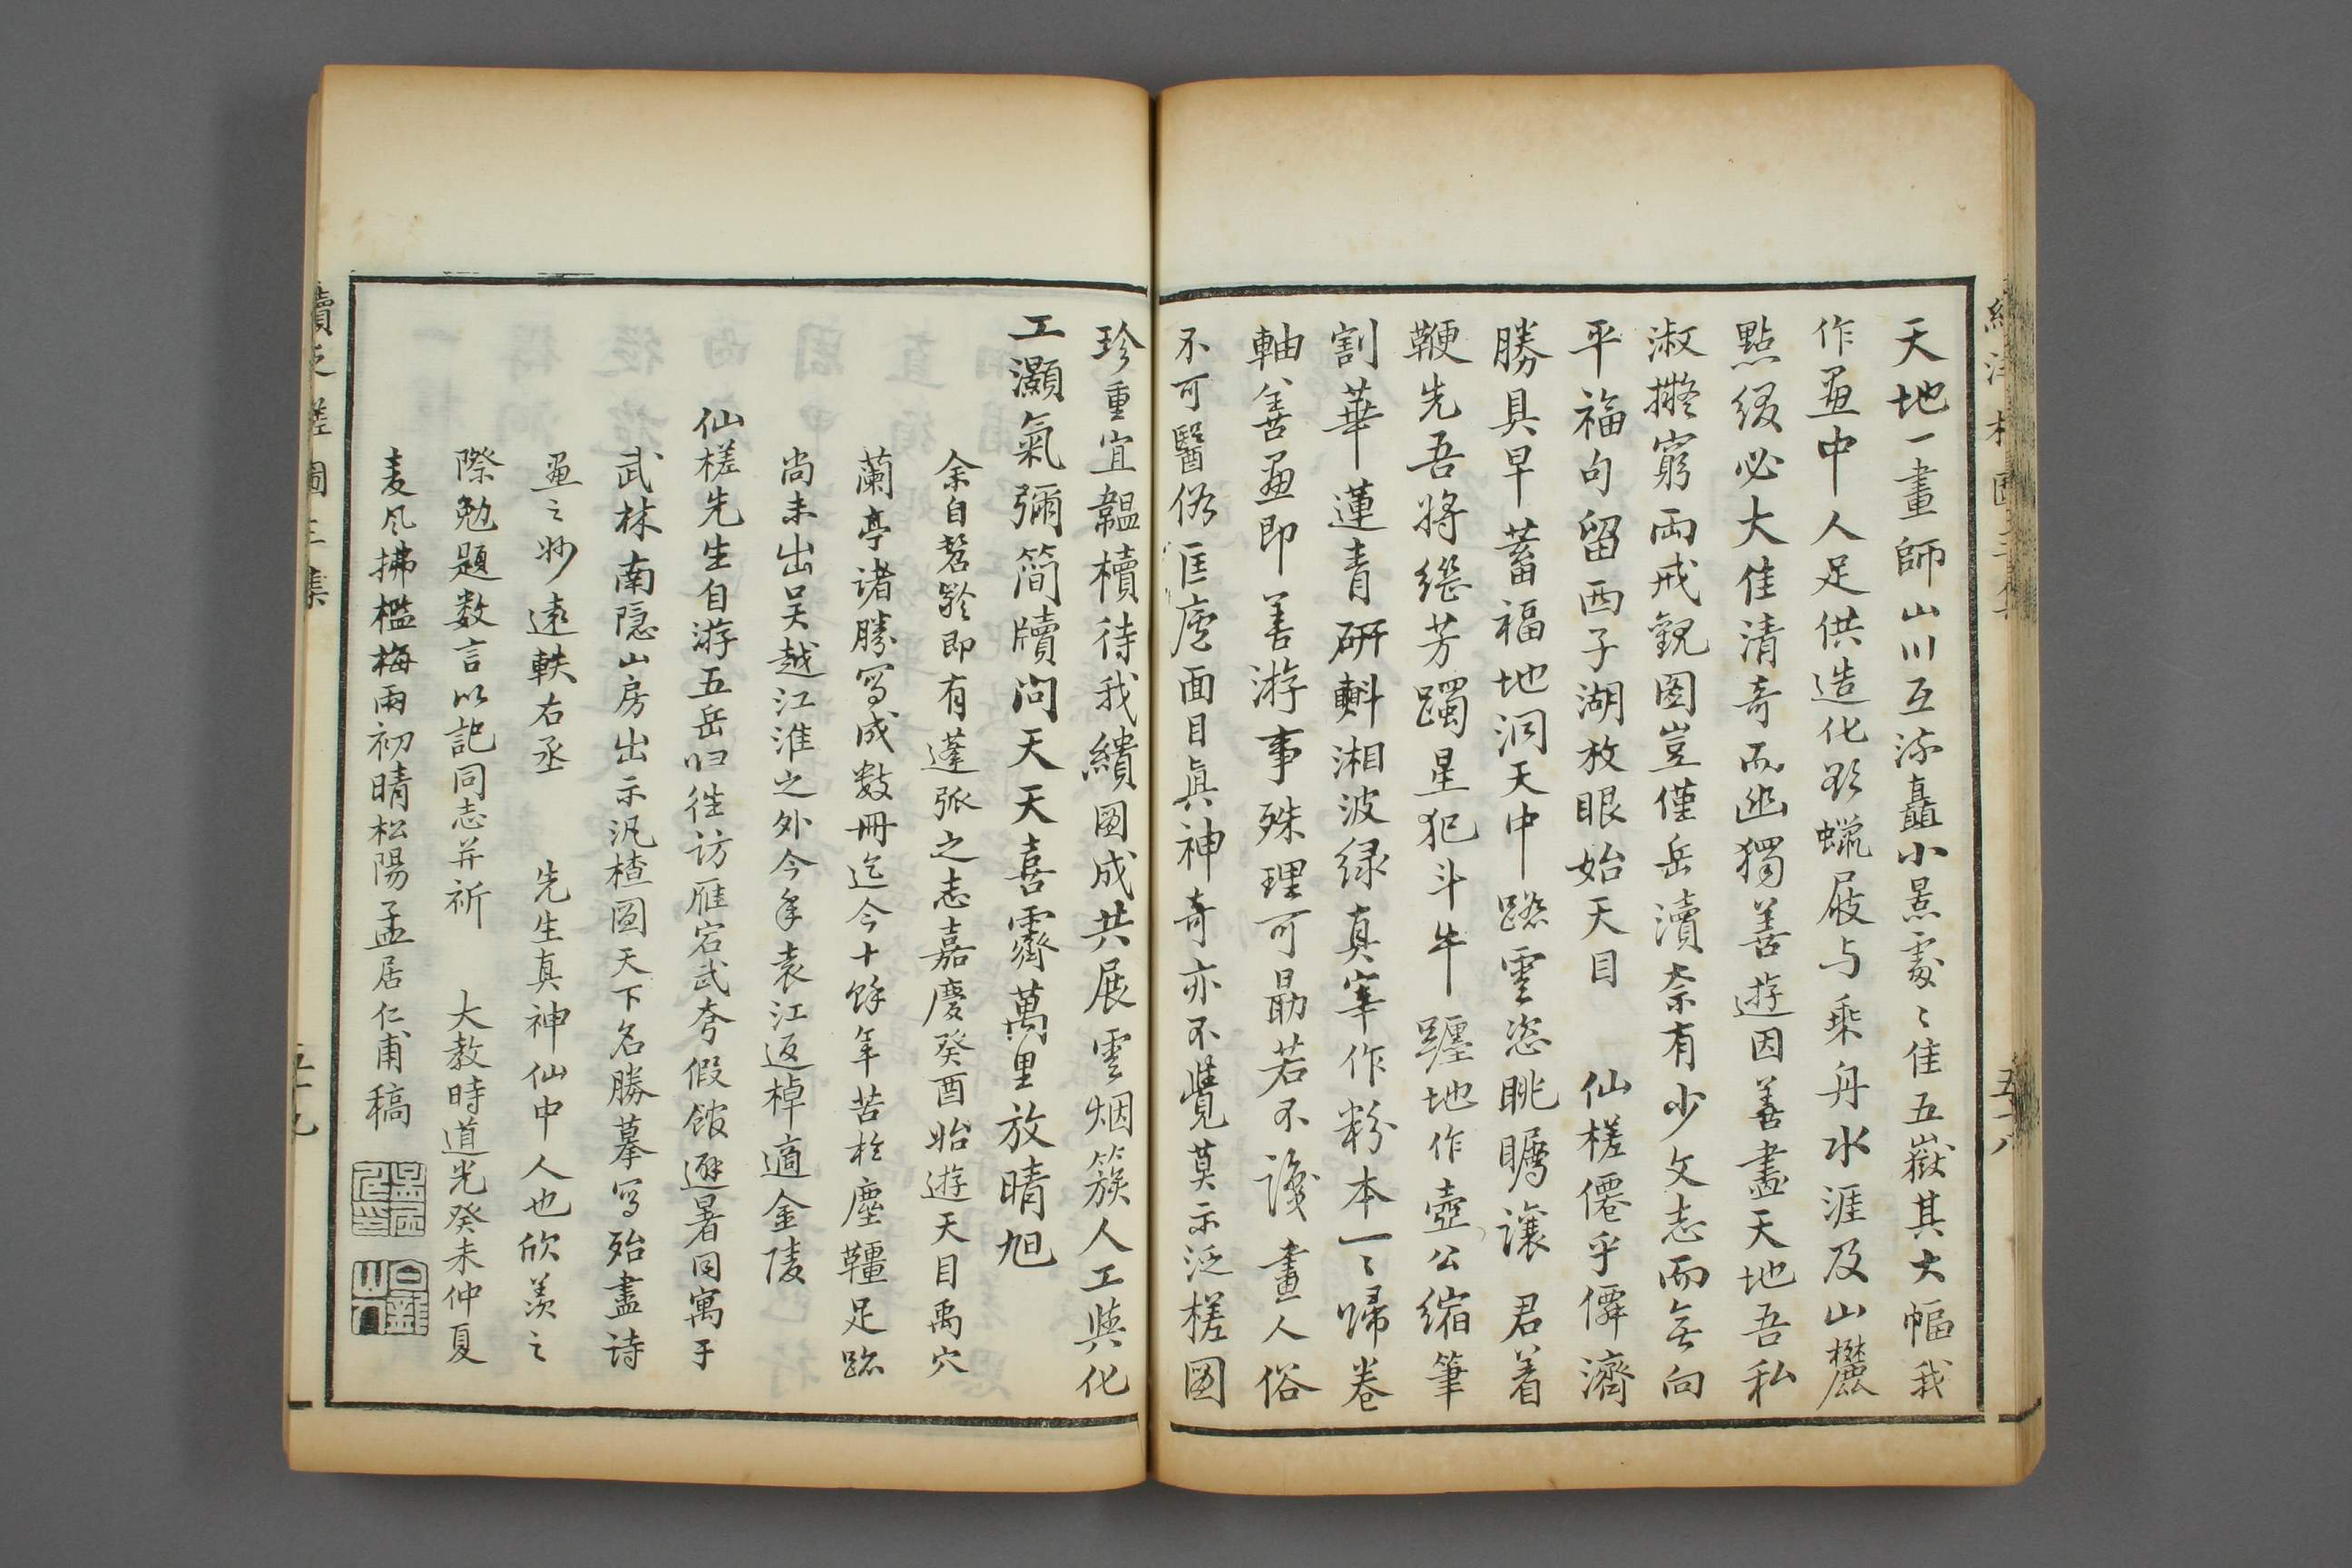 天地一畫師山川互流矗小景處〻佳五嶽其大幅我
作畫中人足供造化欵蠟屐与乘舟水涯及山麓
點綴必大佳清奇而幽獨善遊因善畫天地吾私
淑擬窮兩戒觀图豈僅岳瀆奈有少文志而無向
平福句留西子湖放眼始天目　仙槎僊乎僊濟
勝具早蓄福地洞天中踏雲恣眺矚讓君着
鞭先吾將繼芳躅星犯斗牛躔地作壺公縮筆
割華蓮青研斞湘波绿真宰作粉本一〻歸卷
軸善畫即善游事殊理可勖若不讀畫人俗
不可醫俗匡廬面目真神奇亦不覺莫示泛槎圖
珍重宜韞櫝待我繢圖成共展雲烟簇人工與化
工灝氣彌簡牘问天天喜霽萬里放晴旭
余自髫齡即有蓬弧之志嘉慶癸酉始遊天目禹穴
蘭亭诸勝写成数冊迄今十餘年苦於塵韁足跡
尚未出吴越江淮之外今年袁江返棹適金陵
仙槎先生自游五岳归往访雁宕武夸假館避暑同寓于
武林南隐山房出示汎楂圖天下名勝摹写殆盡诗
畫之妙遠軼右丞　先生真神仙中人也欣羡之
際勉題数言以記同志并祈　大教時道光癸未仲夏
麦风拂檻梅雨初晴松陽孟居仁甫稿
五十八
續泛槎圖三集
五十九